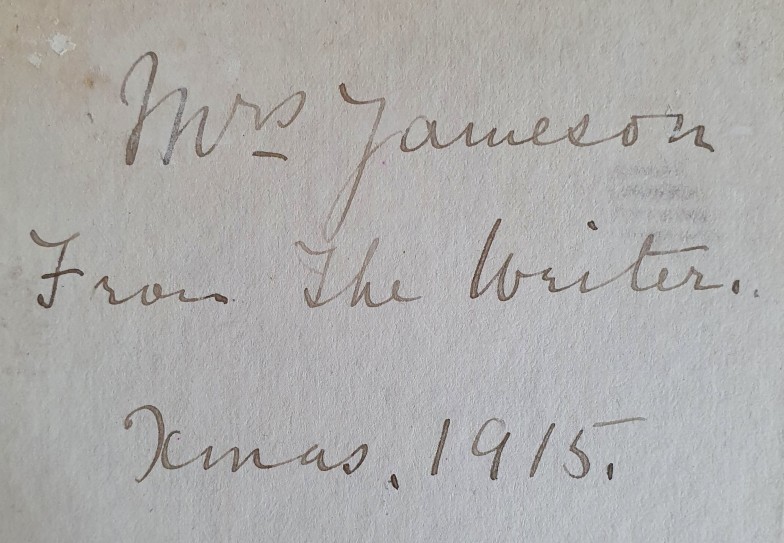 Mrs Jameson
From The Writer.
Xmas. 1915.